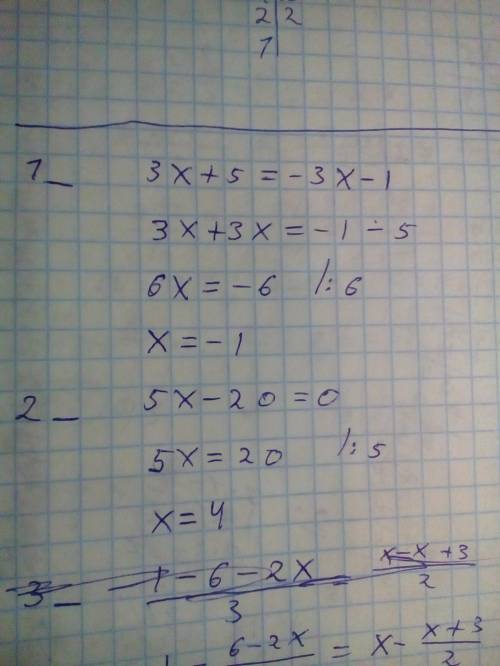 2|2
1|
1_ 3x+5=-3x-1
3x+3x=-1-5
6x=-6 /:6
x=-1
2_ 5x-20=0
5x=20 /:5
x=4
3_ 1-6-2x/3 = x-x+3/2
6-2x = x- x+3/2